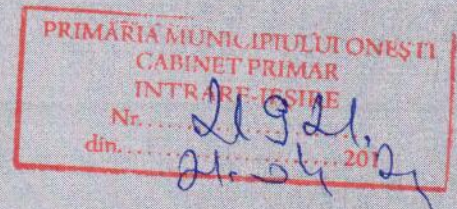 PRIMĂRIA MUNICIPIULUI ONEȘTI
CABINET PRIMAR
INTRARE-IEȘIRE
Nr. 21921.
din 21.04 201